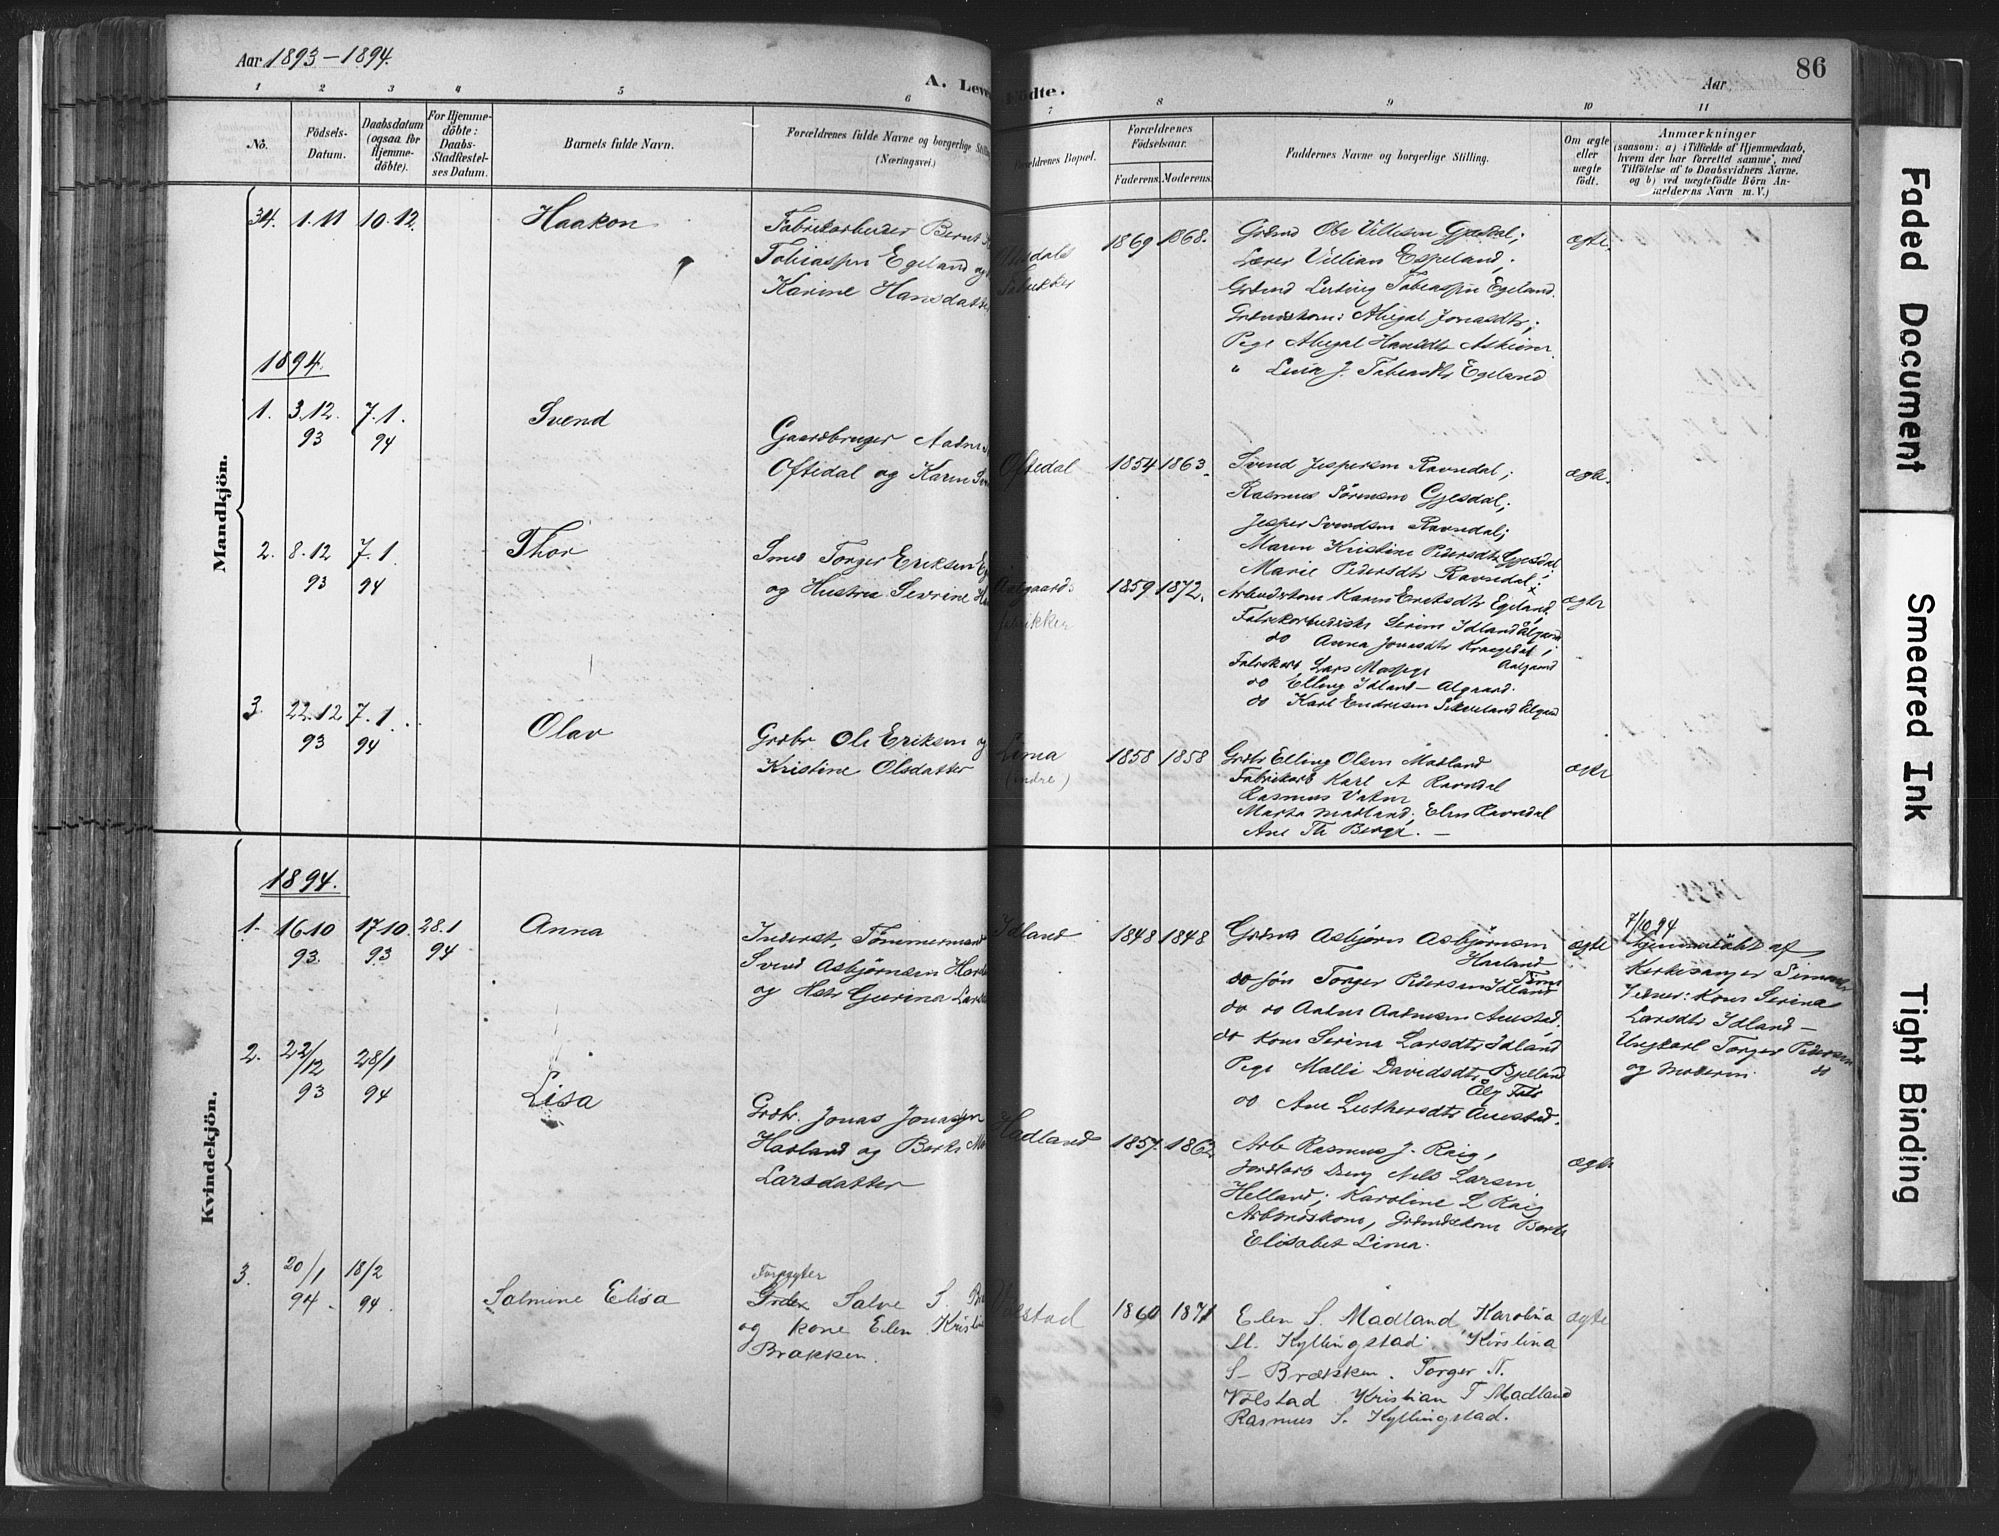 Aar 1893-1894.
A. Leve
Födte.
Aar
86
1 2 3 4 5 6 7 8 9 10 11
No.
Födsels-
Datum.
Daabsdatum
(ogsaa for
Hjemme-
döbte).
For Hjemme-
döbte:
Daabs-
Stadfæstel-
ses Datum.
Barnets fulde Navn.
Forældrenes fulde Navne og borgerlige Stilling
(Næringsvei).
Forældrenes Bopæl.
Forældrenes
Födselsaar.
Faderens. Moderens.
Faddernes Navne og borgerlige Stilling.
Om ægte
eller
uægte
födt.
Anmærkninger
(saasom: a) i Tilfælde af Hjemmedaab,
hvem der har forrettet samme, med
Tilföielse af to Daabsvidners Navne.
og b) ved uægtefödte Börn An-
melderens Navn m. V.)
Mandkjön.
34. 1.11 10.12. Haakon
Fabrikarbeider Bernt
Tobiassen Egeland og
Karine Hansdatter
Oftedals
Fabrikker
1869 1868.
Grdmd Ole Villesen Gjesdal;
Lærer Villian Espeland;
Grdmd Tobiassen Egeland.
Grdmdskone: Abigal Jonasdtr;
Pige Abigal Hansdtr
" J. Tobiasdtr Egeland
ægte.
1894.
1. 3.12. 93 7.1. 94 Svend
Gaardbruger Aadne
Oftedal og Karen
Oftedal
1854 1863.
Svend Jespersen Ravndal;
Rasmus Sørensen Gjesdal;
Jesper Svendsen Ravndal;
Maren Kristine Pedersdtr Gjesdal
Marie Pedersdtr Ravndal;
ægte.
2. 8.12 93 7.1 94 Thor
Smed Torger Eriksen
og Hustru Sevrine
Aalgaards
fabrikker
1859 1872.
Arbeidskone Karen Eriksdtr Egeland
Fabrikarbeiderske Idland Aalgaard
do Anna Jonasdtr
Aalgaard
Fabrikarb Lars
do Elling Idland - Algaard.
do Karl Endresen
ægte
3. 22.12 93 7.1. 94 Olav
Grdbr Ole Eriksen og
Kristine Olsdatter
Lima
(indre)
1858 1858
Grdbr Elling Olsen Madland
Fabrikarb Karl A Ravndal
Rasmus Vatne
Marta Madland; Elen Ravndal
Ane Th Berge. -
ægte
Kvindekjön.
1894.
1. 16.10 93. 17.10. 93 28.1 94 Anna
Inderst, Tømmermand
Svend Asbjørnsen
og Hstr Gurina
Idland
1848 1848
Grdmd Asbjørn Asbjørnsen
Haaland
do søn Torger Pedersen Idland
do do Aadne Aadnesen Auestad.
do kone Serina Larsdtr Idland
Pige Malli Davidsdtr Bjelland
Alg Fabr
do Ane Luthersdtr Auestad.
ægte
7/10 94
hjemmedøbt af
Kirkesanger
Vidner: Kone Serina
Larsdtr Idland -
Ungkarl Torger Pedersen
do
og moderen.
2. 22/12 93 28/1 94 Lisa
Grdbr. Jonas Jonassen
Hadland og
Larsdatter
Hadland
1857. 1862
Arb Rasmus J. Raig,
Nels Larsen
Helland; Karoline L Raig
Arbeidskone, Grdmdskone
Elisabet Lima.
ægte
3. 20/1 94. 18/2 94. Salmine Elisa
Forpagter
Salve S.
og kone Elen
Brækken.
Vølstad
1860 1871
Elen S. Madland Karolina
St. Kyllingstad. Kirstina
S- Brækken. Torger N.
Vølstad Kristian T Madland
Rasmus S. Kyllingstad.
ægte
Faded Document
Smeared Ink
Tight Binding